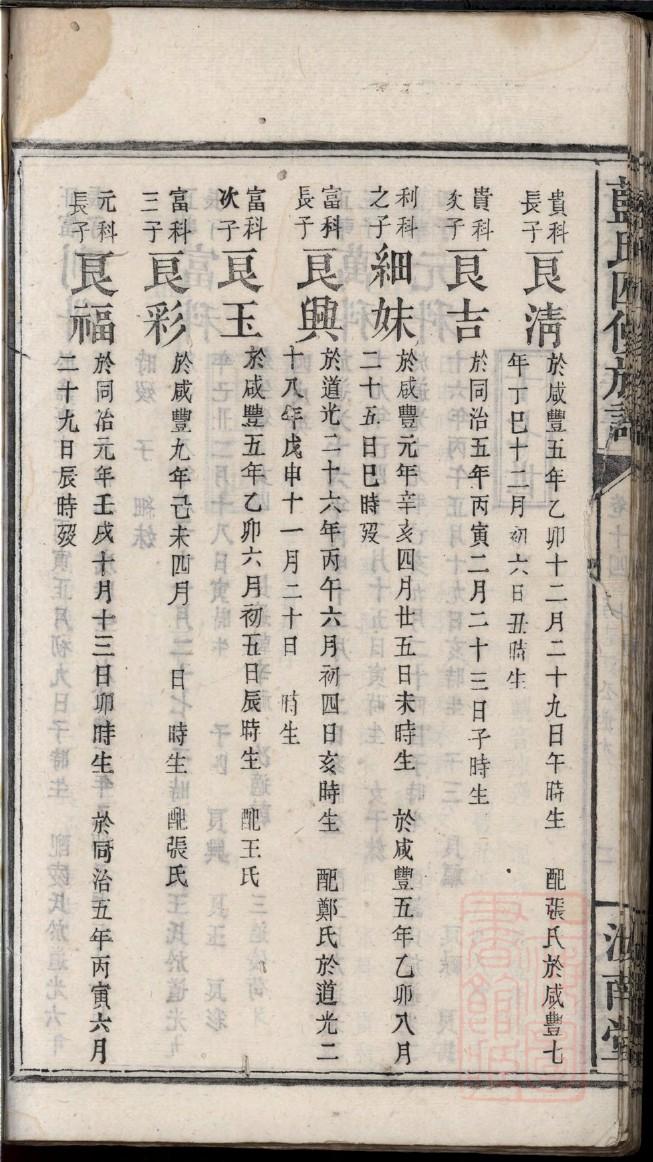 貴科
長子
良淸
於咸豐五年乙卯十二月二十九日午時生 配張氏於咸豐七
年丁巳十二月初六日丑時生
貴科
次子
良吉
於同治五年丙寅二月二十三日子時生
利科
之子
細妹
於咸豐元年辛亥四月廿五日未時生 於咸豐五年乙卯八月
二十五日巳時歿
富科
長子
良興
於道光二十六年丙午六月初四日亥時生 配鄭氏於道光二
十八年戊申十一月二十日 時生
富科
次子
良玉
於咸豐五年乙卯六月初五日辰時生 配王氏
富科
三子
良彩
於咸豐九年己未四月 日 時生 配張氏
元科
長子
良福
於同治元年壬戌十月十三日卯時生 於同治五年丙寅六月
二十九日辰時歿